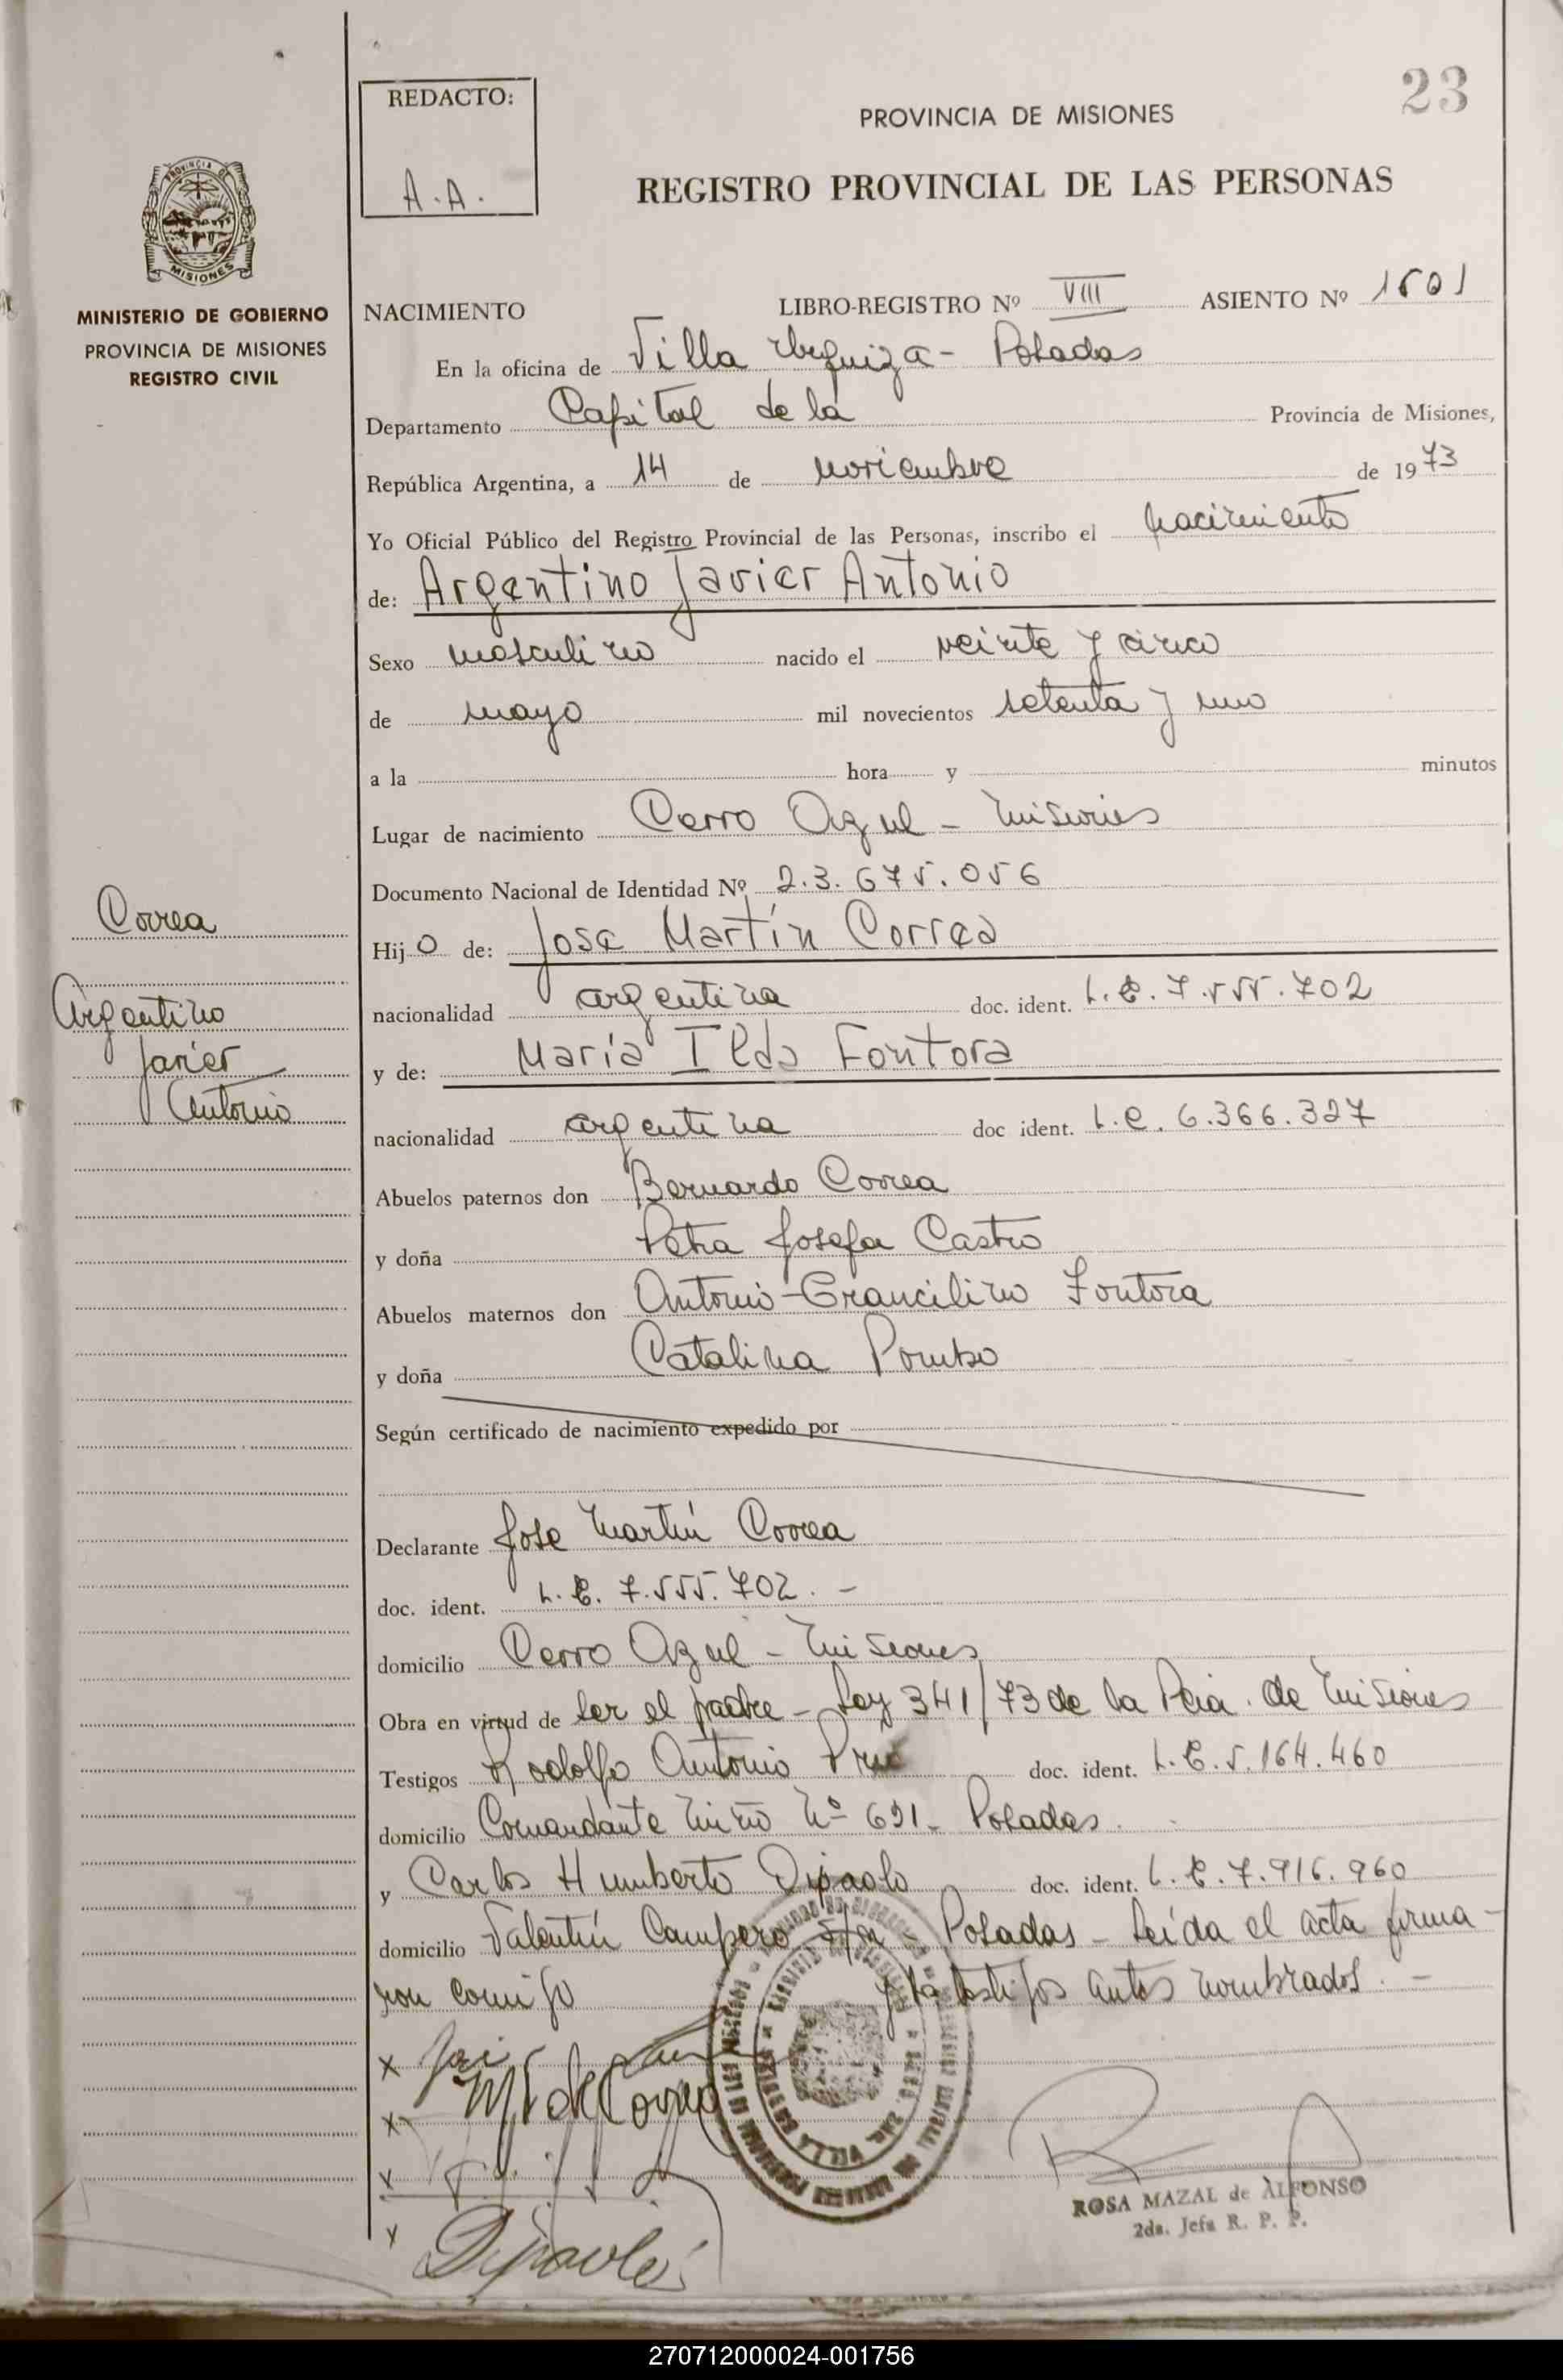 23
REDACTO:
A.A.
PROVINCIA DE MISIONES
REGISTRO PROVINCIAL DE LAS PERSONAS
PROVINCIA DE
MISIONES
MINISTERIO DE GOBIERNO
PROVINCIA DE MISIONES
REGISTRO CIVIL
NACIMIENTO LIBRO-REGISTRO Nº VIII ASIENTO Nº 1501
En la oficina de Villa Urquiza - Posadas
Departamento Capital de la Provincia de Misiones,
República Argentina, a 14 de noviembre de 1973
Yo Oficial Público del Registro Provincial de las Personas, inscribo el nacimiento
de: Argentino Javier Antonio
Sexo masculino nacido el veinte y cinco
de mayo mil novecientos setenta y uno
a la hora y minutos
Lugar de nacimiento Cerro Azul - Misiones
Documento Nacional de Identidad Nº 23.675.056
Correa
Argentino
Javier
Antonio
Hijo de: José Martín Correa
nacionalidad argentina doc. ident. L.E. 7.555.702
y de: María Ilda Fontora
nacionalidad argentina doc ident. L.C. 6.366.327
Abuelos paternos don Bernardo Correa
y doña Petra Josefa Castro
Abuelos maternos don Antonio Francilino Fontora
y doña Catalina Pombo
Según certificado de nacimiento expedido por
Declarante José Martín Correa
doc. ident. L.E. 7.555.702. -
domicilio Cerro Azul - Misiones
Obra en virtud de ser el padre - Ley 341/73 de la Pcia. de Misiones
Testigos Rodolfo Antonio doc. ident. L.E. 5.164.460
domicilio Comandante Miño Nº 691 - Posadas.
y Carlos Humberto Dipaolo doc. ident. L.E. 7.916.960
domicilio Valentín Campero s/n - Posadas - Leída el acta firma-
ron conmigo y la testigos antes nombrados. -
x
x M I de Correa
x
x Dipaolo
ROSA MAZAL de ALFONSO
2da. Jefa R. P. P.
270712000024-001756